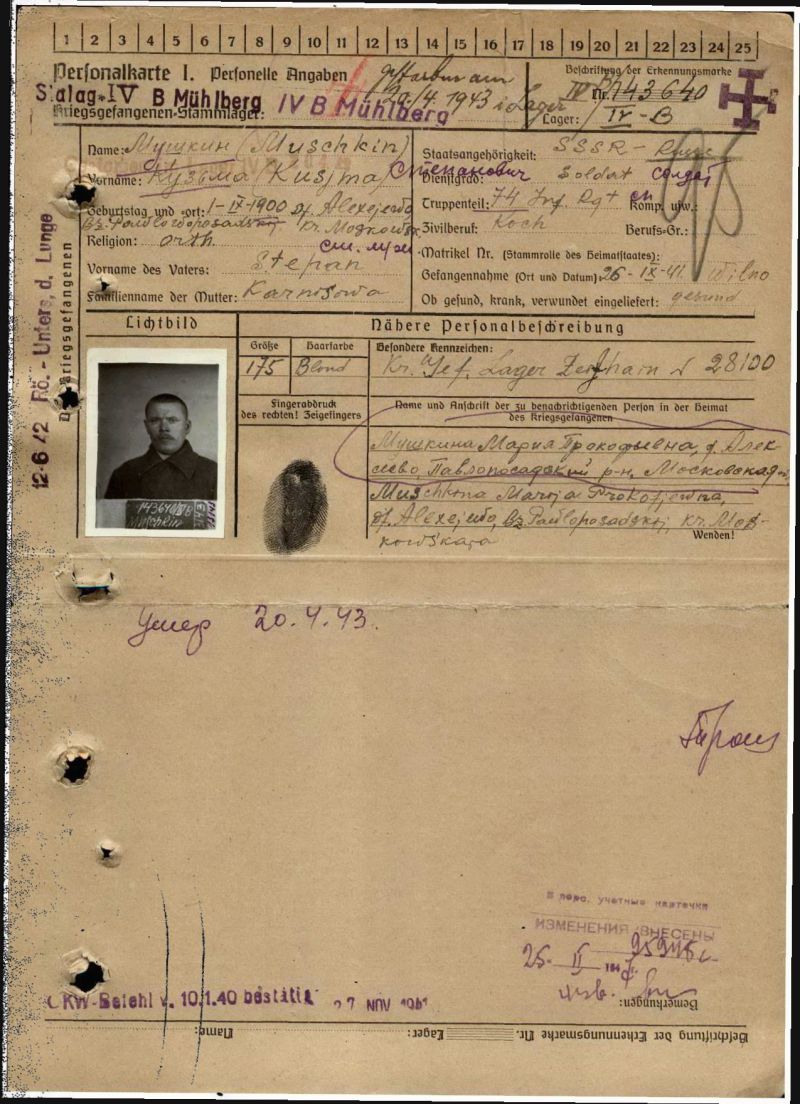 1 2 3 4 5 6 7 8 9 10 11 12 13 14 15 16 17 18 19 20 21 22 23 24 25
Personalkarte I. Personelle Angaben
gestorben am
20/4. 1943 i. Lager
Beschriftung der Erkennungsmarke
Nr. 143640
Lager: IV-B
Stalag-IV B Mühlberg IV B Mühlberg
Kriegsgefangenen-Stammlager:
Name: Мушкин (Muschkin)
Vorname: Кузьма (Kusjma) Степанович
Geburtstag und -ort: 1-IX-1900 df. Alexejewo
Bz. Pawlowoposadskij Kr. Moskowsk
Religion: orth
Vorname des Vaters: Stepan
Familienname der Mutter: Karnisowa
Staatsangehörigkeit: SSSR - Russe
Dienstgrad: Soldat солдат
Truppenteil: 74 Inf. Rgt Komp. usw.:
Zivilberuf: Koch Berufs-Gr.:
Matrikel Nr. (Stammrolle des Heimatstaates):
Gefangennahme (Ort und Datum): 26-IX-41. Wilno
Ob gesund, krank, verwundet eingeliefert: gesund
Lichtbild
Nähere Personalbeschreibung
Größe
Haarfarbe
Besondere Kennzeichen:
175
Blond
Kr. Gef. Lager Zeithain № 28100
Fingerabdruck
des rechten! Zeigefingers
Name und Anschrift der zu benachrichtigenden Person in der Heimat
des Kriegsgefangenen
Мушкина Мария Прокофьевна, д. Алек-
сеево, Павлопосадский р-н, Московская
Muschkina Marija Prokofjewna,
df. Alexejewo, Bz. Pawloposadskij, Kr. Mos-
kowskaja
Wenden!
143640 IV B
Muschkin
12-6 42 Rö. - Unters, d. Lunge
Des Kriegsgefangenen
Умер 20.4.43.
В перс. учетные карточки
ИЗМЕНЕНИЯ ВНЕСЕНЫ
Bemerkungen:
OKW-Befehl v. 10.1.40 bestätigt 27 NOV 1941
Beschriftung der Erkennungsmarke Nr. Lager: Name: